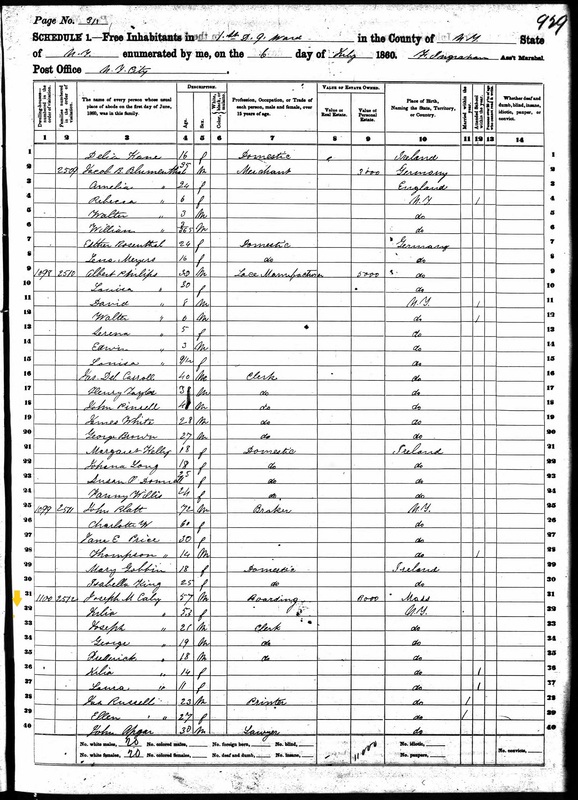 Page No. 315
929
SCHEDULE 1.—Free Inhabitants in 1st D. 9 Ward in the County of N.Y. State
of N.Y. enumerated by me, on the 6 day of July 1860. Ingraham Ass't Marshal.
Post Office N.Y. City
DESCRIPTION. VALUE OF ESTATE OWNED.
Dwelling-houses numbered in the order of visitation. Families numbered in the order of visitation. The name of every person whose usual place of abode on the first day of June, 1860, was in this family. Age. Sex. Profession, Occupation, or Trade of each person, male and female, over 15 years of age. Value of Real Estate. Value of Personal Estate. Place of Birth, Naming the State, Territory, or Country. Married within the year. Whether deaf and dumb, blind, insane, idiotic, pauper, or convict.
1 2 3 4 5 6 7 8 9 10 11 12 13 14
1 Delia Kane 16 f Domestic Ireland 1
2 2509 Jacob B. Blumenthal 35 M Merchant 3000 Germany 2
3 Amelia " 24 f England 3
4 Rebecca " 6 f N.Y. 1 4
5 Walter " 3 M do 5
6 William " M do 6
7 Esther Rosenthal 24 f Domestic Germany 7
8 Lena Meyers 16 f do do 8
9 1098 2510 Albert Philips 30 M Lace Manufacturer 5000 do 9
10 Louisa " 30 f do 10
11 David " 8 M N.Y. 1 11
12 Walter " 6 M do 1 12
13 Serena " 5 f do 13
14 Edwin " 3 M do 14
15 Louisa " 9/12 f do 15
16 Jas Del Carroll 40 M Clerk do 16
17 Henry Taylor M do do 17
18 John Pinsell M do do 18
19 James White 28 M do do 19
20 George Brown 27 M do do 20
21 Margaret Kelly 18 f Domestic Ireland 21
22 Johana Long 18 f do do 22
23 Susan P. Donnell 25 f do do 23
24 Fanny Willis 24 f do do 24
25 1099 2511 John Blatt 72 M Broker N.Y. 25
26 Charlotte W 60 f do 26
27 Jane E. Price 30 f do 27
28 Thompson " 14 M do 1 28
29 Mary Gobbin 18 f Domestic Ireland 29
30 Isabella King 25 f do do 30
31 1100 2512 Joseph M. Caty 57 M Boarding Mass 31
32 f N.Y. 32
33 Joseph " 21 M Clerk do 33
34 George " 19 M do do 34
35 Frederick " 18 M do do 35
36 " 14 f do 1
37 Laura " 11 f do 1
Jas Russell 23 M Printer do 1
Ellen " 27 f do 1
40 John Apgar 30 M Lawyer do 40
No. white males, 20 No. colored males, No. foreign born, No. blind, 11000 No. idiotic, No. convicts,
No. white females, 20 No. colored females, No. deaf and dumb, No. insane, No. paupers,